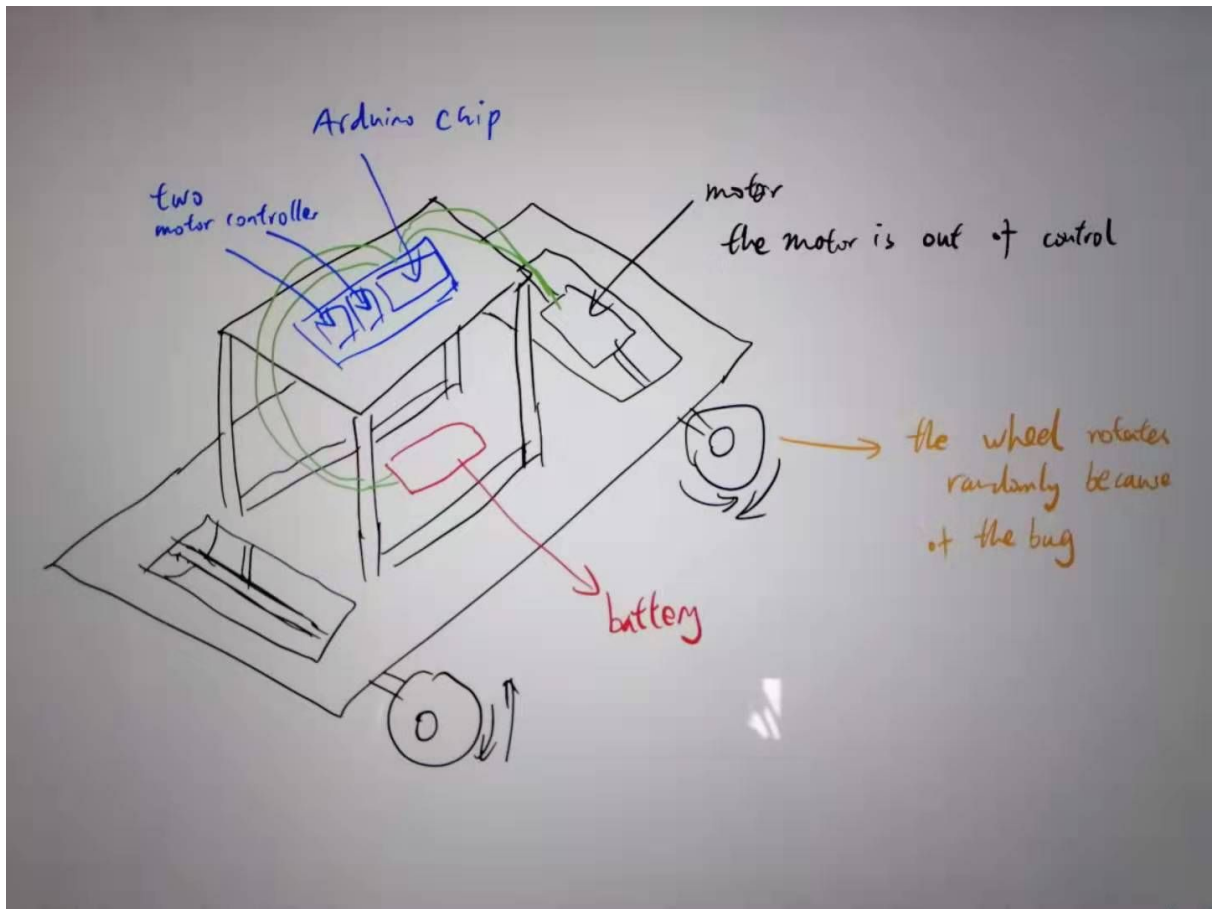 Arduino chip
two
motor controller
motor
the motor is out of control
the wheel rotates
randomly because
of the bug
battery